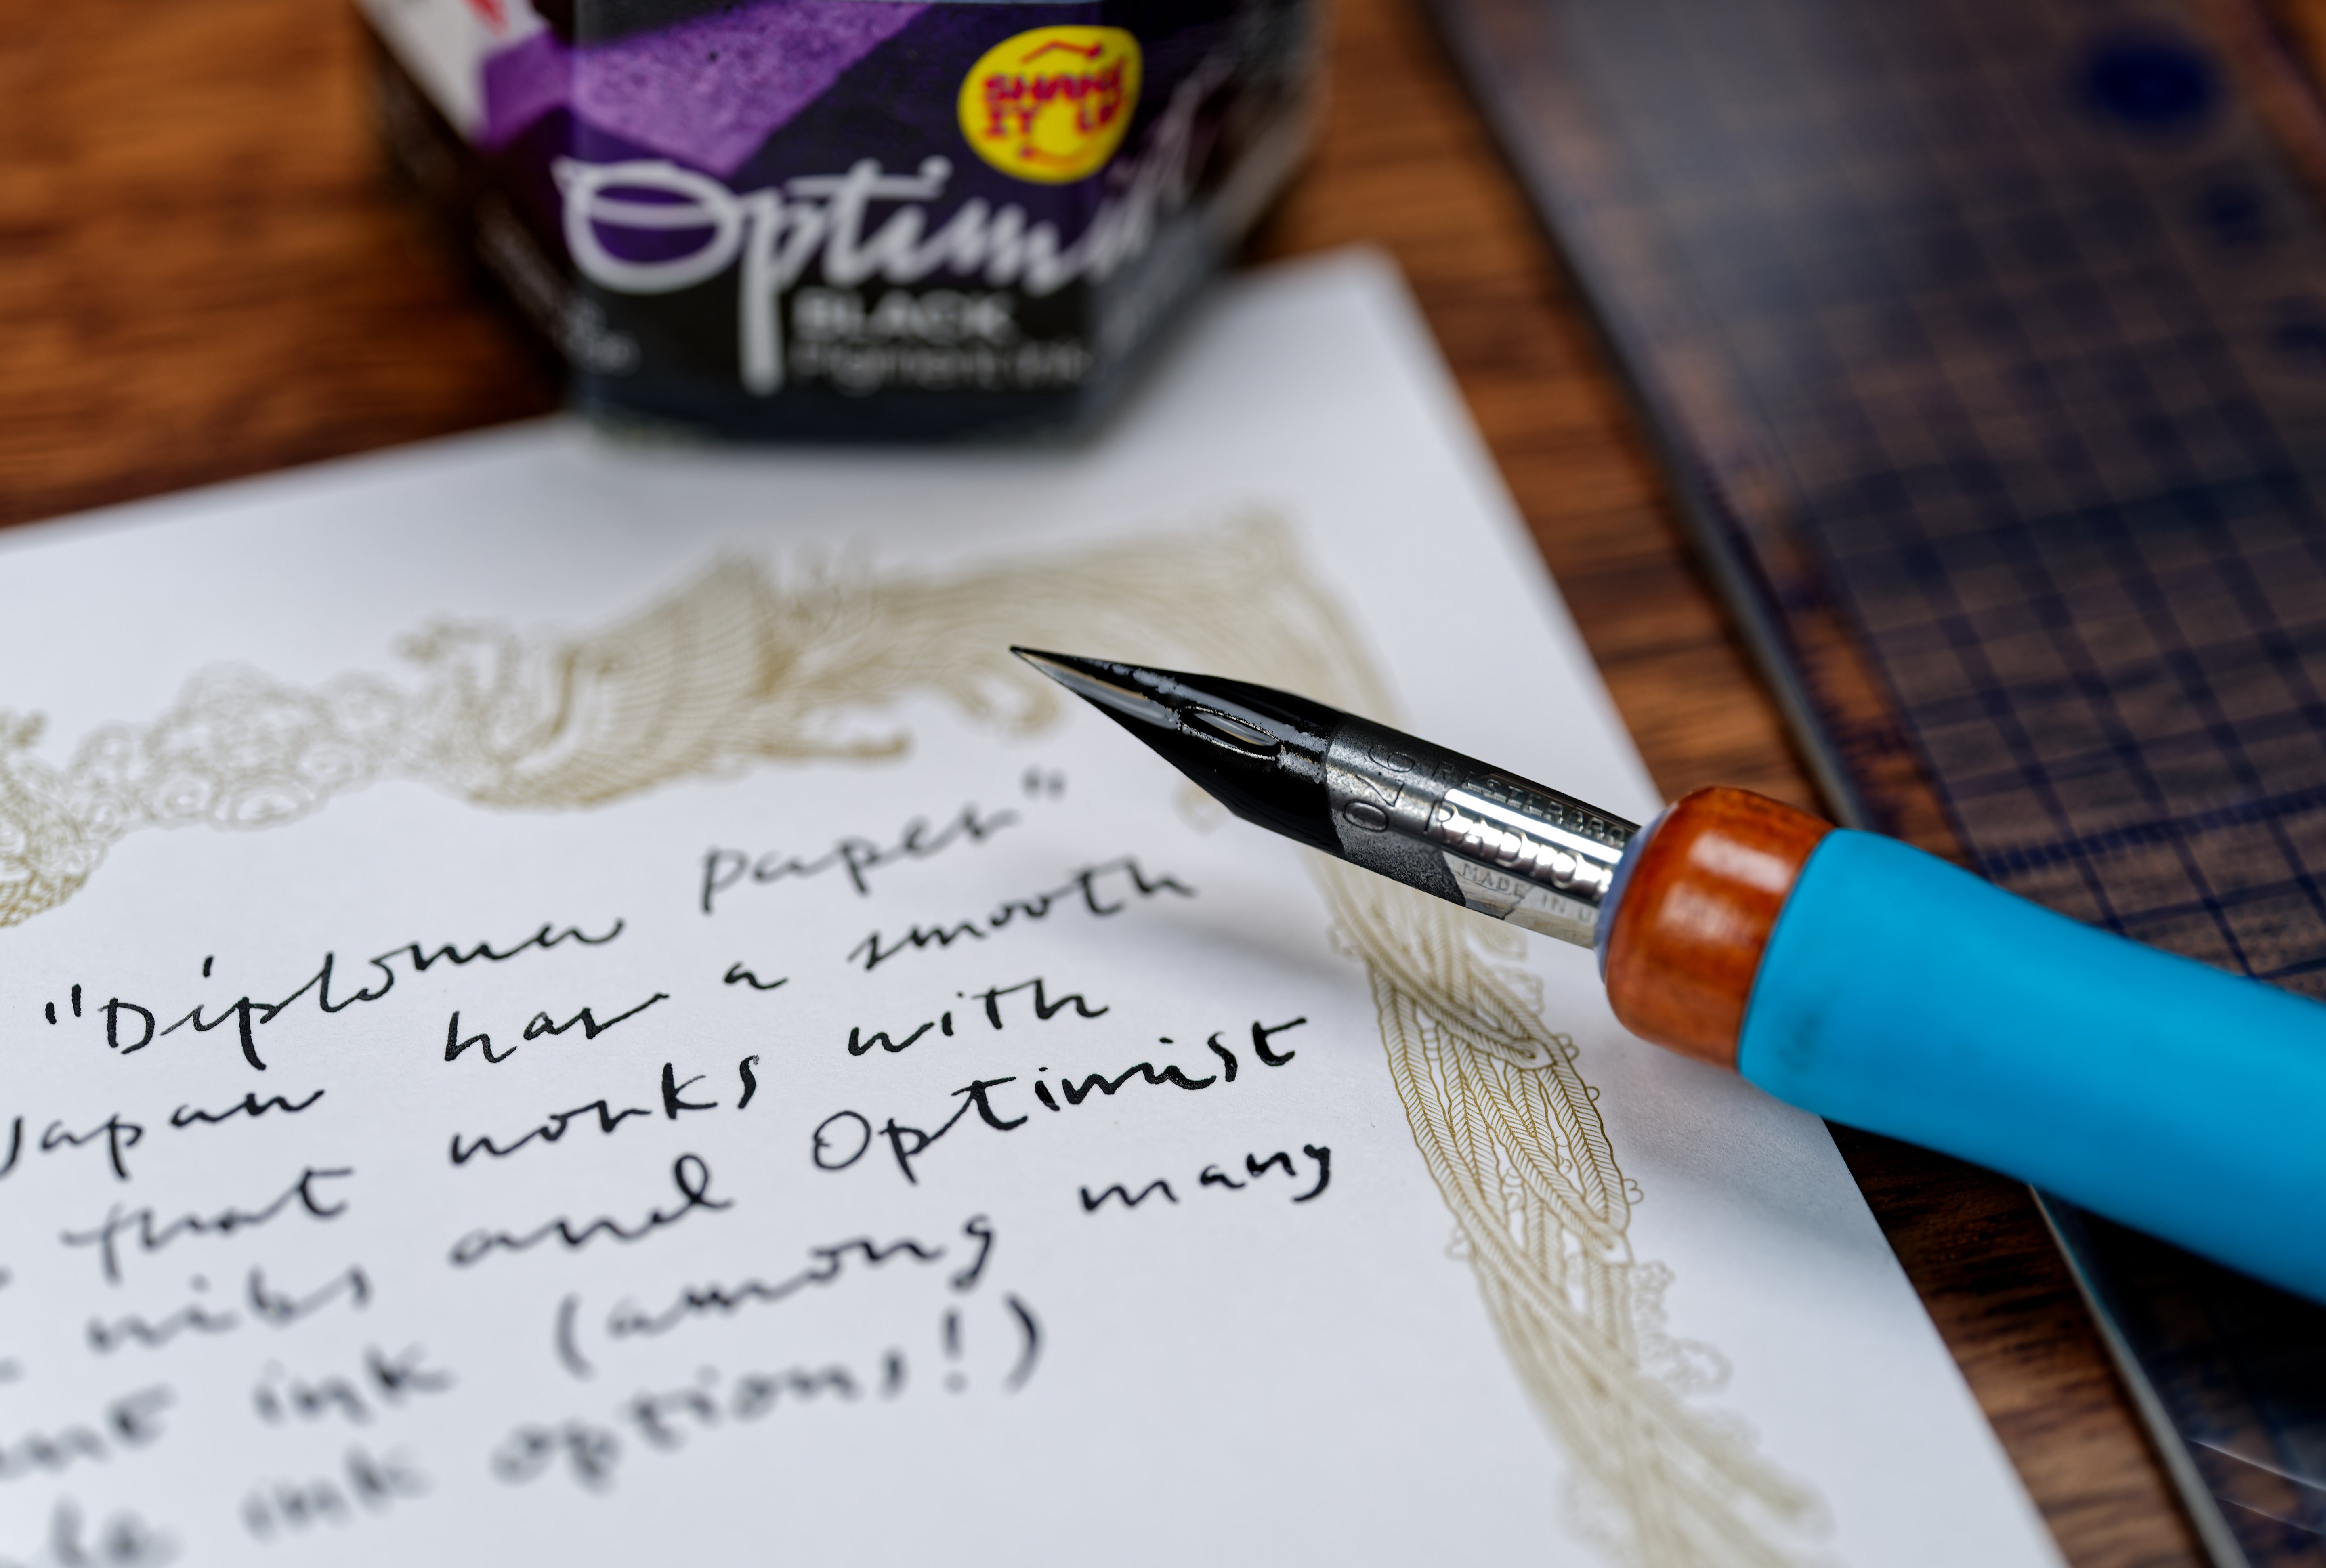 SHAKE
IT UP
Optimi
BLACK
Pigment Ink
"Diploma paper"
Japan has a smooth
that works with
nibs and Optimist
ink (among many
ink options!)
076
ESTERBROOK
RADIO
MADE IN U